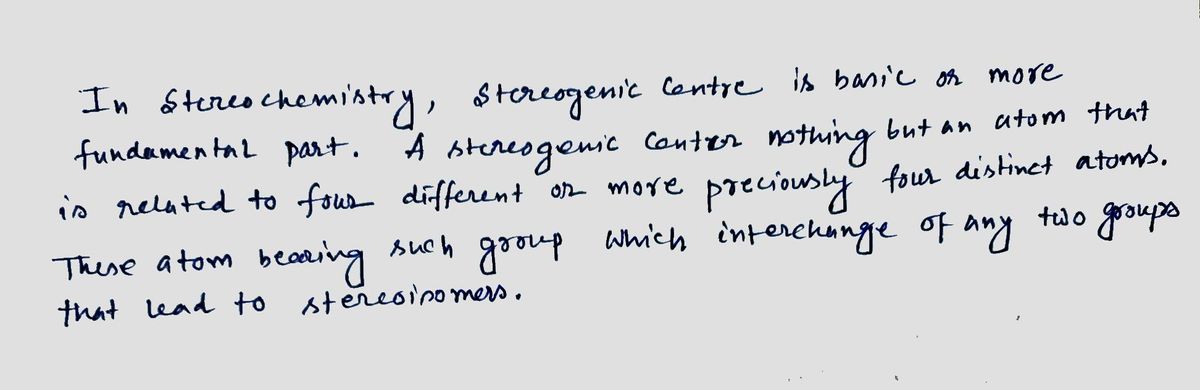 In Stereochemistry, Stereogenic Centre is basic or more
fundamental part. A stereogenic Center nothing but an atom that
is related to four different or more preciously four distinct atoms.
These atom bearing such group which interchange of any two groups
that lead to stereoisomers.